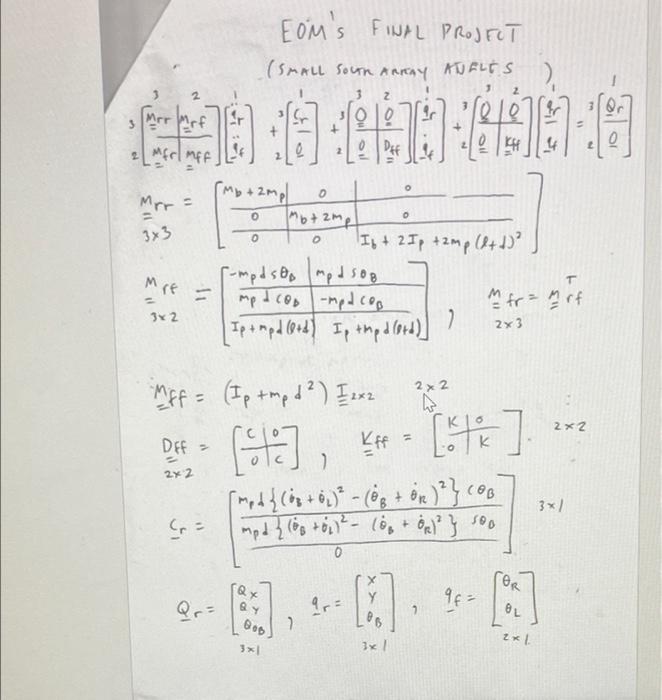 EOM's FINAL PROJECT
(SMALL SOLAR ARRAY ANGLES)
3 2 1 1 3 2 1 3 2 1 1
3 2 [M_rr | M_rf ; M_fr | M_ff] [q̈_r ; q̈_f] + 3 2 [C_r ; 0] + 3 2 [0 | 0 ; 0 | D_ff] [q̇_r ; q̇_f] + 3 2 [0 | 0 ; 0 | K_ff] [q_r ; q_f] = 3 2 [Q_r ; 0]
M_rr = [m_b + 2m_p | 0 | 0 ; 0 | m_b + 2m_p | 0 ; 0 | 0 | I_b + 2I_p + 2m_p (l+d)²]
3x3
M_rf = [-m_p d sθ_B | m_p d sθ_B ; m_p d cθ_B | -m_p d cθ_B ; I_p + m_p d (l+d) | I_p + m_p d (l+d)] , M_fr = M_rf^T
3x2 2x3
M_ff = (I_p + m_p d²) I_2x2 2x2
D_ff = [C | 0 ; 0 | C] , K_ff = [K | 0 ; 0 | K] . 2x2
2x2
C_r = [m_p d {(θ̇_B + θ̇_L)² - (θ̇_B + θ̇_R)²} cθ_B ; m_p d {(θ̇_B + θ̇_L)² - (θ̇_B + θ̇_R)²} sθ_B ; 0] 3x1
Q_r = [Q_x ; Q_y ; Q_θB] , q_r = [x ; y ; θ_B] , q_f = [θ_R ; θ_L]
3x1 3x1 2x1.